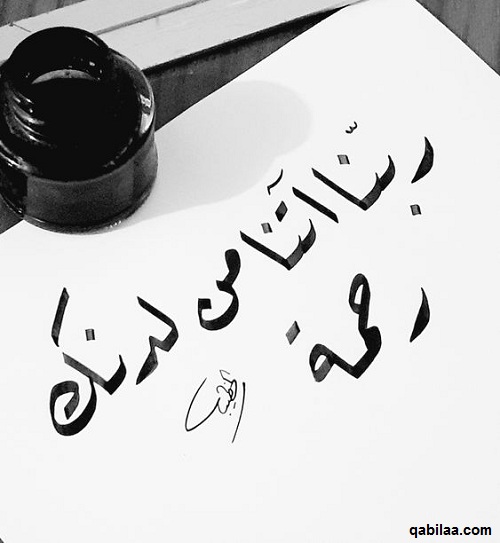 ربّنا آتنا من لدنك
رحمة
qabilaa.com